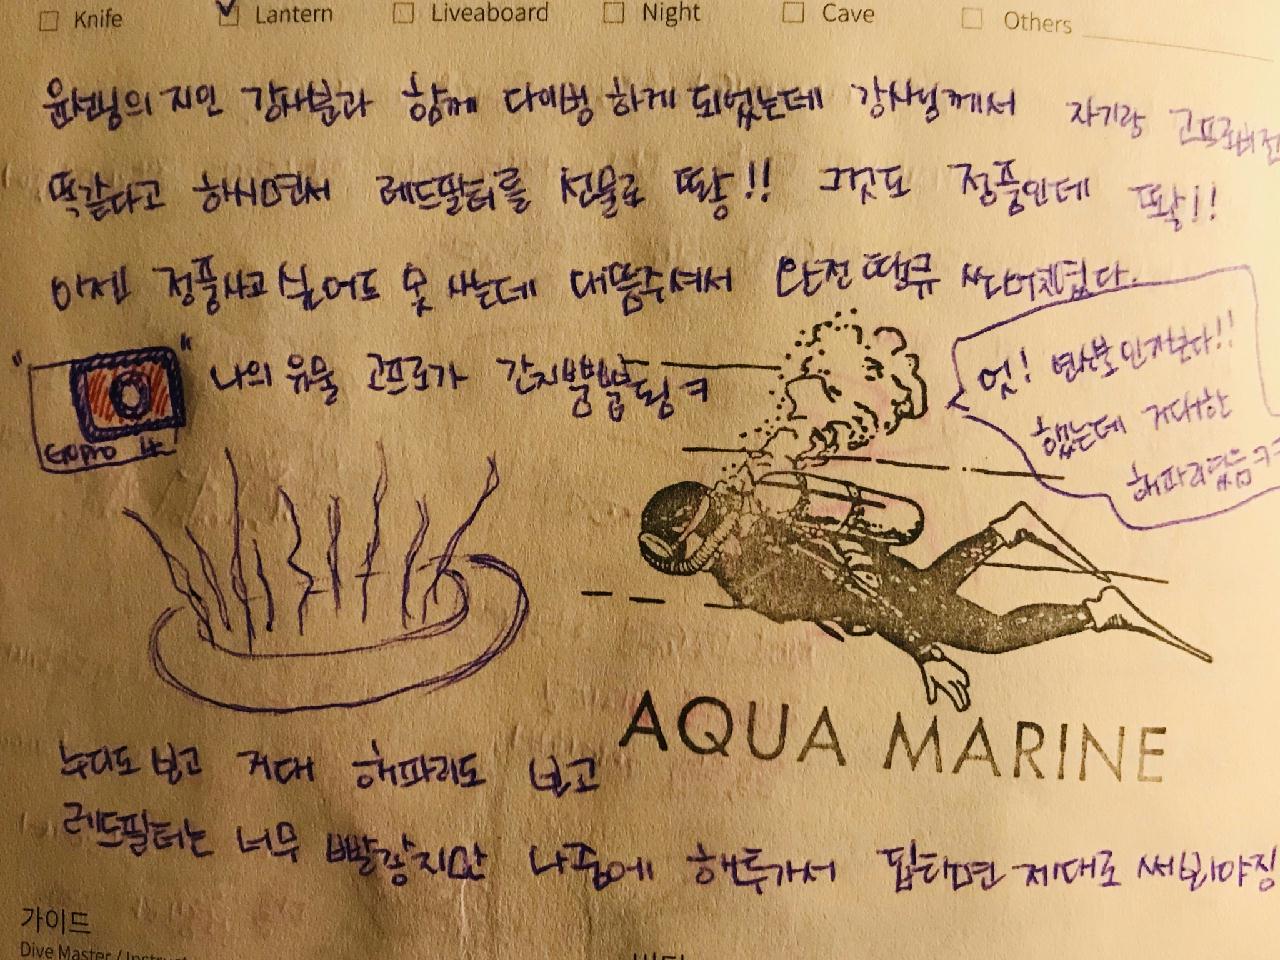 Knife Lantern Liveaboard Night Cave Others
윤쌤의 지인 강사분과 함께 다이빙 하게 되었는데 강사님께서 자기랑 고프로버전
똑같다고 하시면서 레드필터를 선물로 똭!! 그것도 정품인데 똭!!
이젠 정품사고 싶어도 못 사는데 대뜸주셔서 완전 땡큐
"GoPro 4" 나의 유물 고프로가 간지뿜뿜됨ㅋ
엇! 변신분인지보다!!
했는데 거대한
해파리였음ㅋㅋ
AQUA MARINE
누디도 보고 거대 해파리도 보고
레드필터는 너무 빨갛지만 나중에 해투가서 딥타면 제대로 써봐야징
가이드